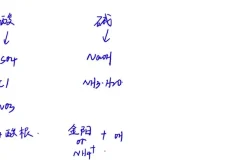 酸 碱
↓ ↓
SO4 NaOH
Cl NH3·H2O
NO3
酸根. 金阳 + OH
or
NH4+